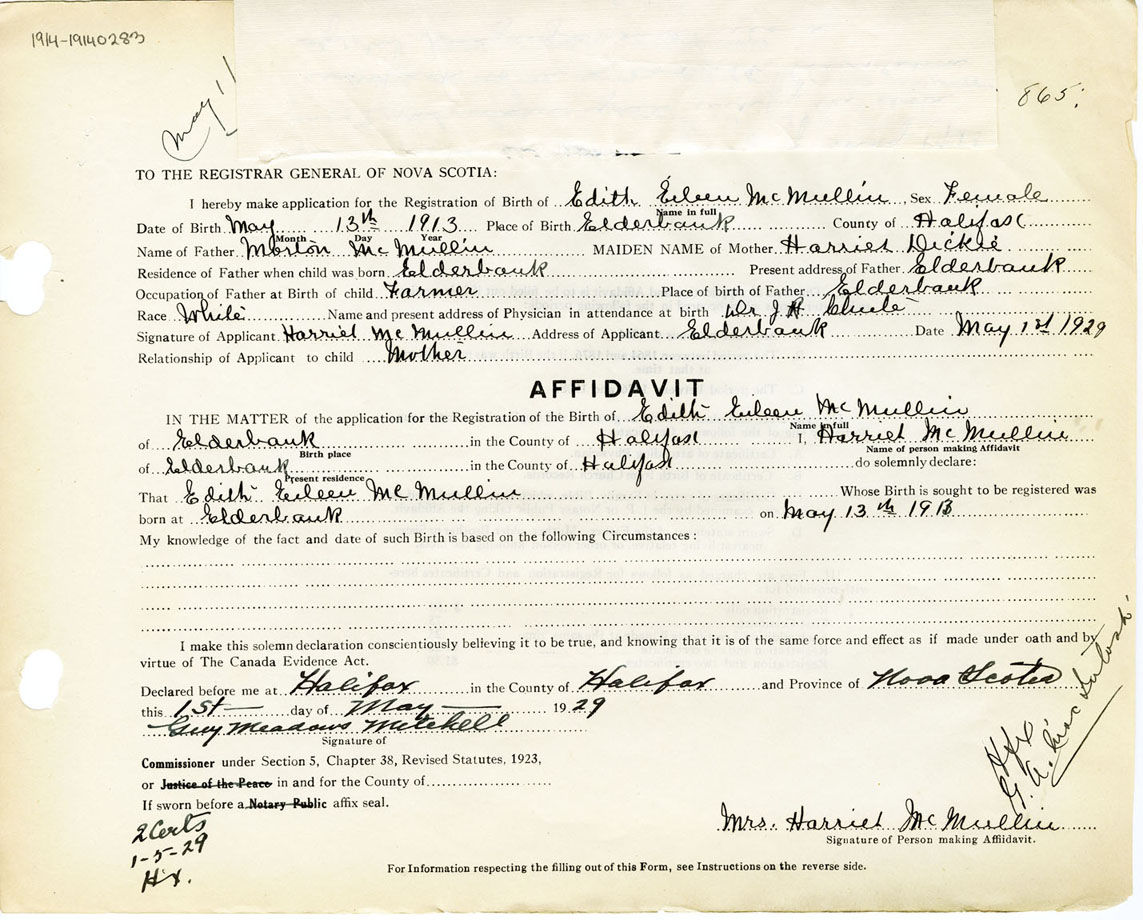 1914-19140283
May 11
865.
TO THE REGISTRAR GENERAL OF NOVA SCOTIA:
I hereby make application for the Registration of Birth of Edith Eileen McMullin Sex Female
Name in full
Date of Birth May 13th 1913 Place of Birth Elderbank County of Halifax
Month Day Year
Name of Father Morton McMullin MAIDEN NAME of Mother Harriet Dickie
Residence of Father when child was born Elderbank Present address of Father Elderbank
Occupation of Father at Birth of child Farmer Place of birth of Father Elderbank
Race White Name and present address of Physician in attendance at birth Dr J H Chute
Signature of Applicant Harriet McMullin Address of Applicant Elderbank Date May 1st 1929
Relationship of Applicant to child Mother
AFFIDAVIT
IN THE MATTER of the application for the Registration of the Birth of Edith Eileen McMullin
Name in full
of Elderbank in the County of Halifax I, Harriet McMullin
Birth place Name of person making Affidavit
of Elderbank in the County of Halifax do solemnly declare:
Present residence
That Edith Eileen McMullin Whose Birth is sought to be registered was
born at Elderbank on May 13th 1913
My knowledge of the fact and date of such Birth is based on the following Circumstances:
I make this solemn declaration conscientiously believing it to be true, and knowing that it is of the same force and effect as if made under oath and by
virtue of The Canada Evidence Act.
Declared before me at Halifax in the County of Halifax and Province of Nova Scotia
this 1st day of May 1929
Guy Meadows Mitchell
Signature of
Commissioner under Section 5, Chapter 38, Revised Statutes, 1923,
or Justice of the Peace in and for the County of
If sworn before a Notary Public affix seal.
2 Certs
1-5-29
Hx.
Hfx
G. A. MacIntosh
Mrs. Harriet McMullin
Signature of Person making Affidavit.
For Information respecting the filling out of this Form, see Instructions on the reverse side.